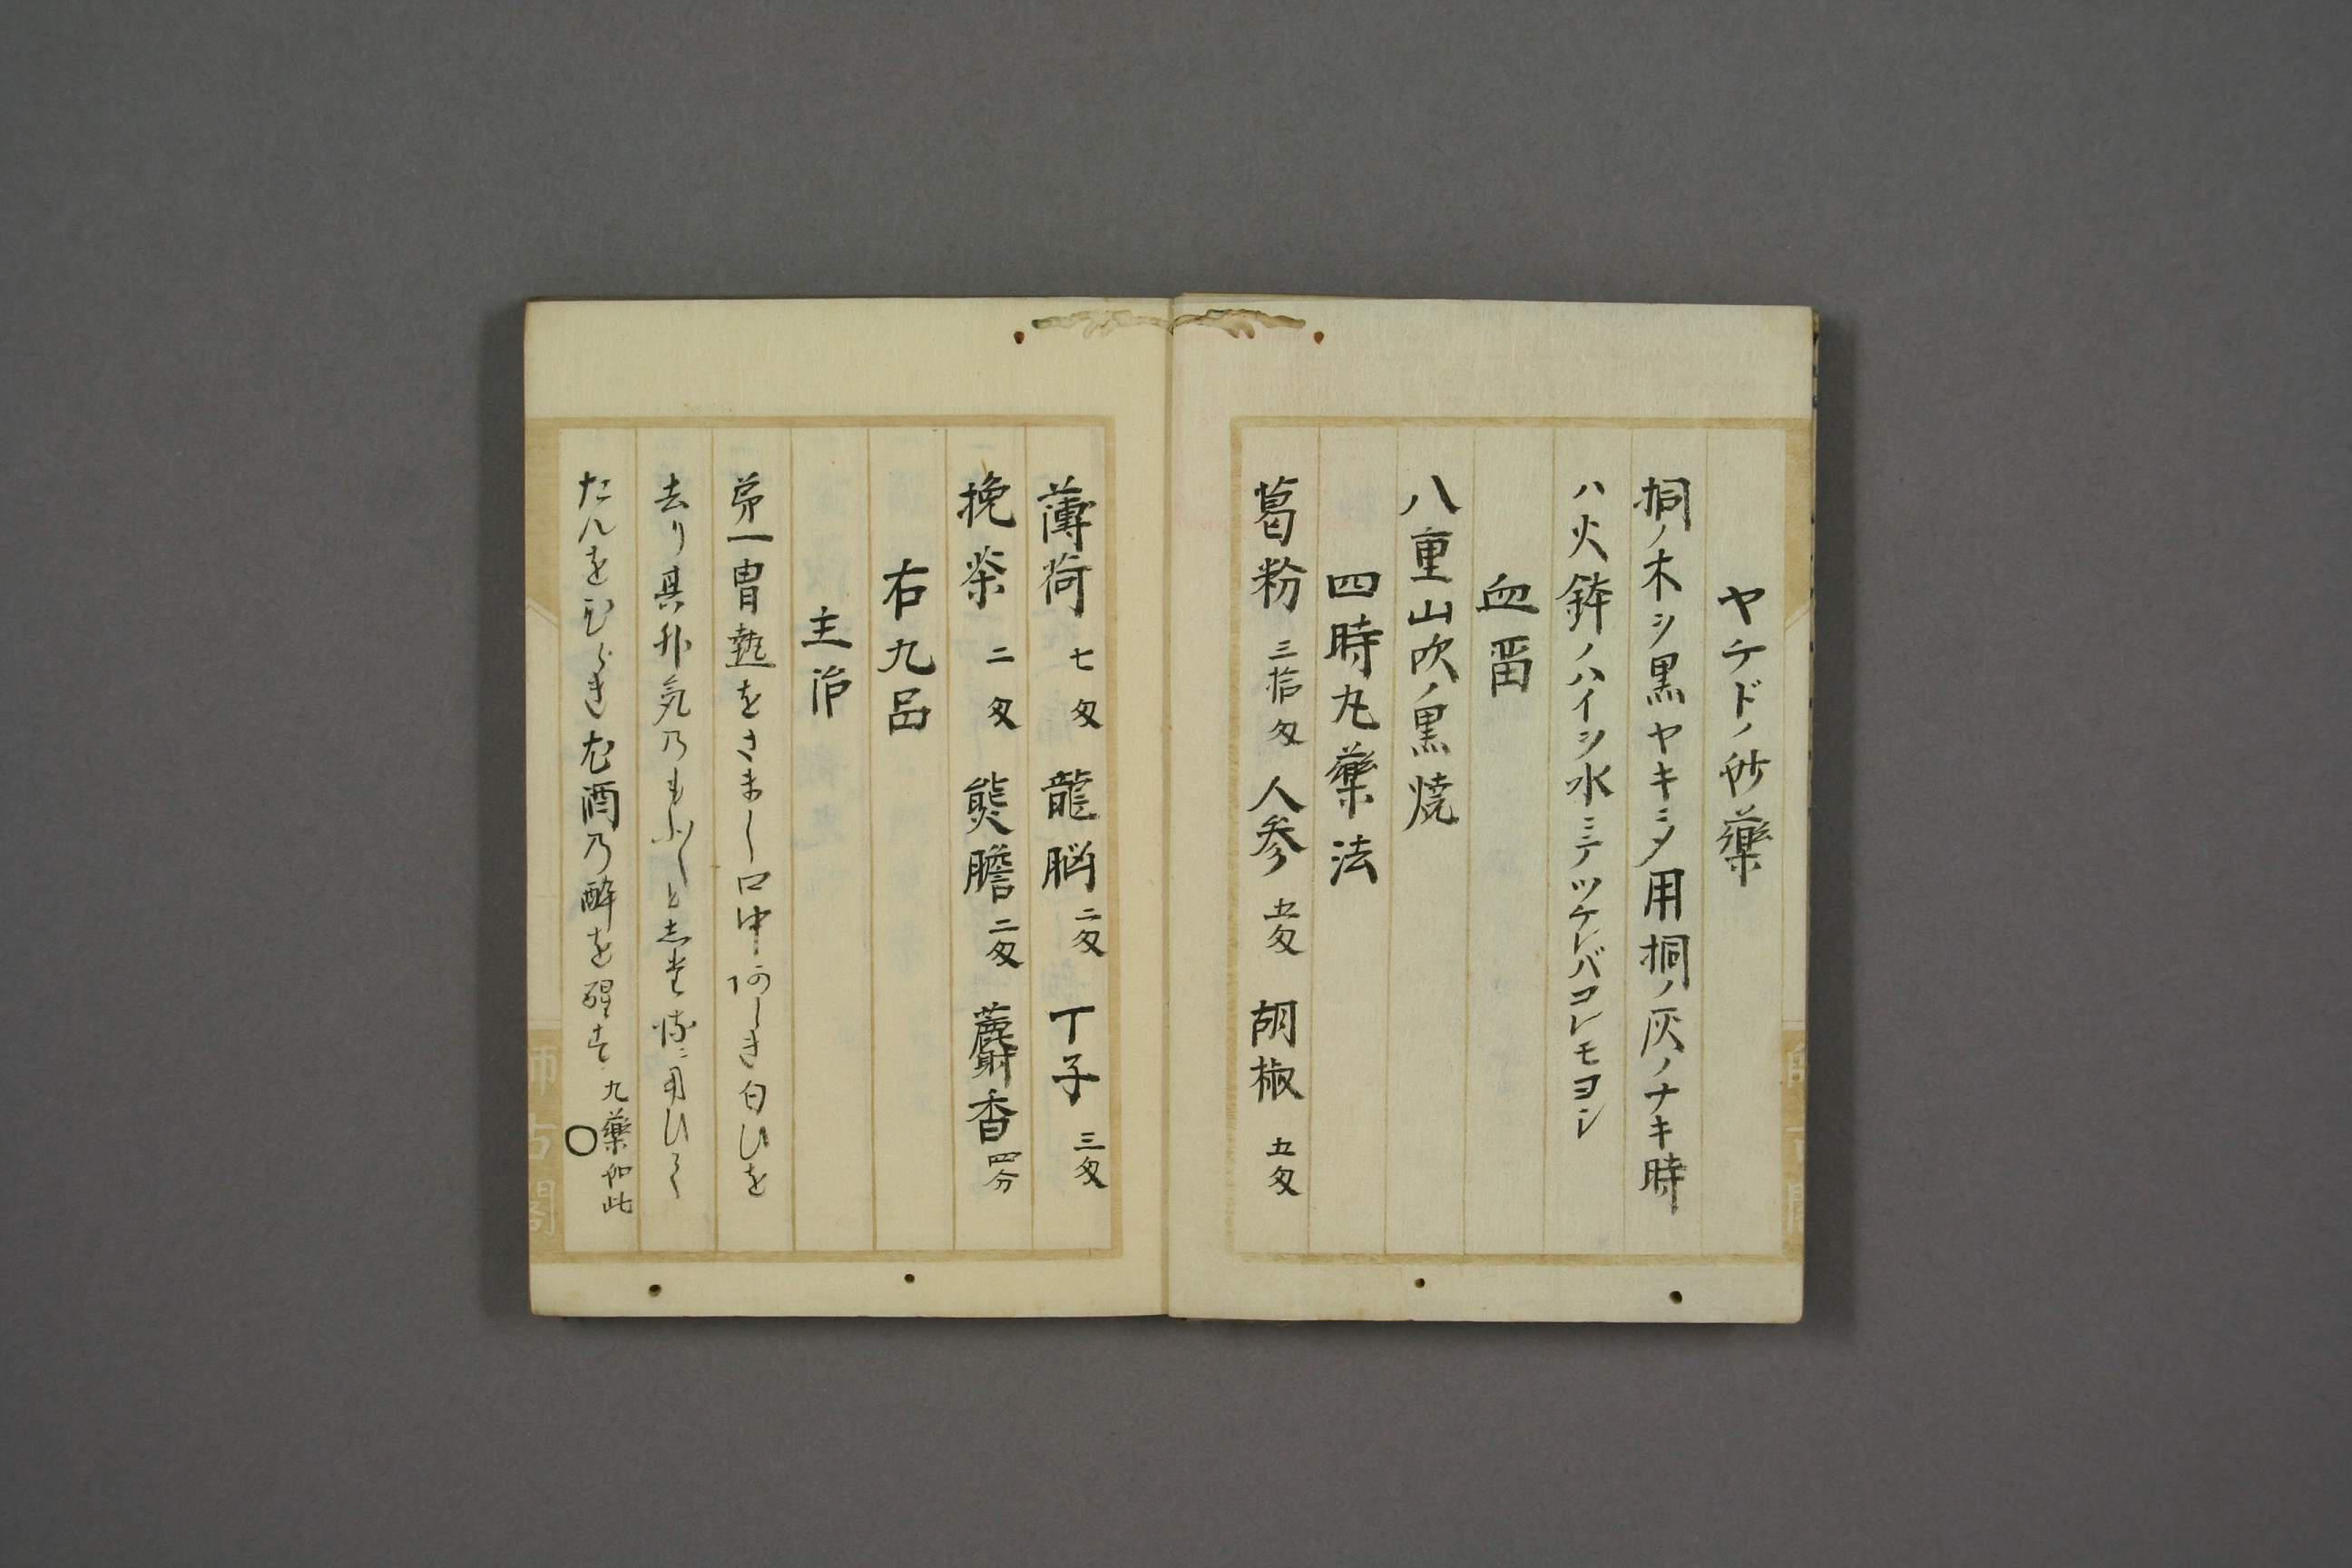 ヤケドノ妙藥
桐ノ木ヲ黒ヤキニメ用桐ノ灰ノナキ時
ハ火鉢ノハイヲ水ニテツケレバコレモヨシ
血畱
八重山吹ノ黒焼
四時丸藥法
葛粉 三拾匁 人参 五匁 胡椒 五匁
薄荷 七匁 龍脳 二匁 丁子 三匁
挽茶 二匁 熊膽 二匁 麝香 四分
右九品
主治
第一胃熱をさまし口中阿しき匂ひを
去り其外気乃
用ひてたんをひらき尤酒乃酔を醒す 丸藥如此
師古閣